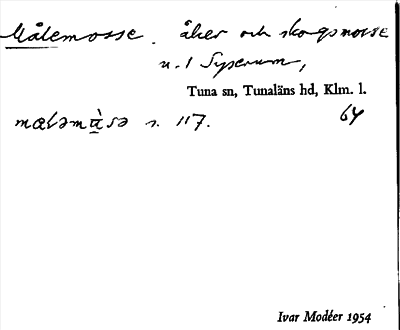 Målemosse. åker och skogsmosse
n. l Syserum,
Tuna sn, Tunaläns hd, Klm. l.
64
s. 117.
Ivar Modéer 1954